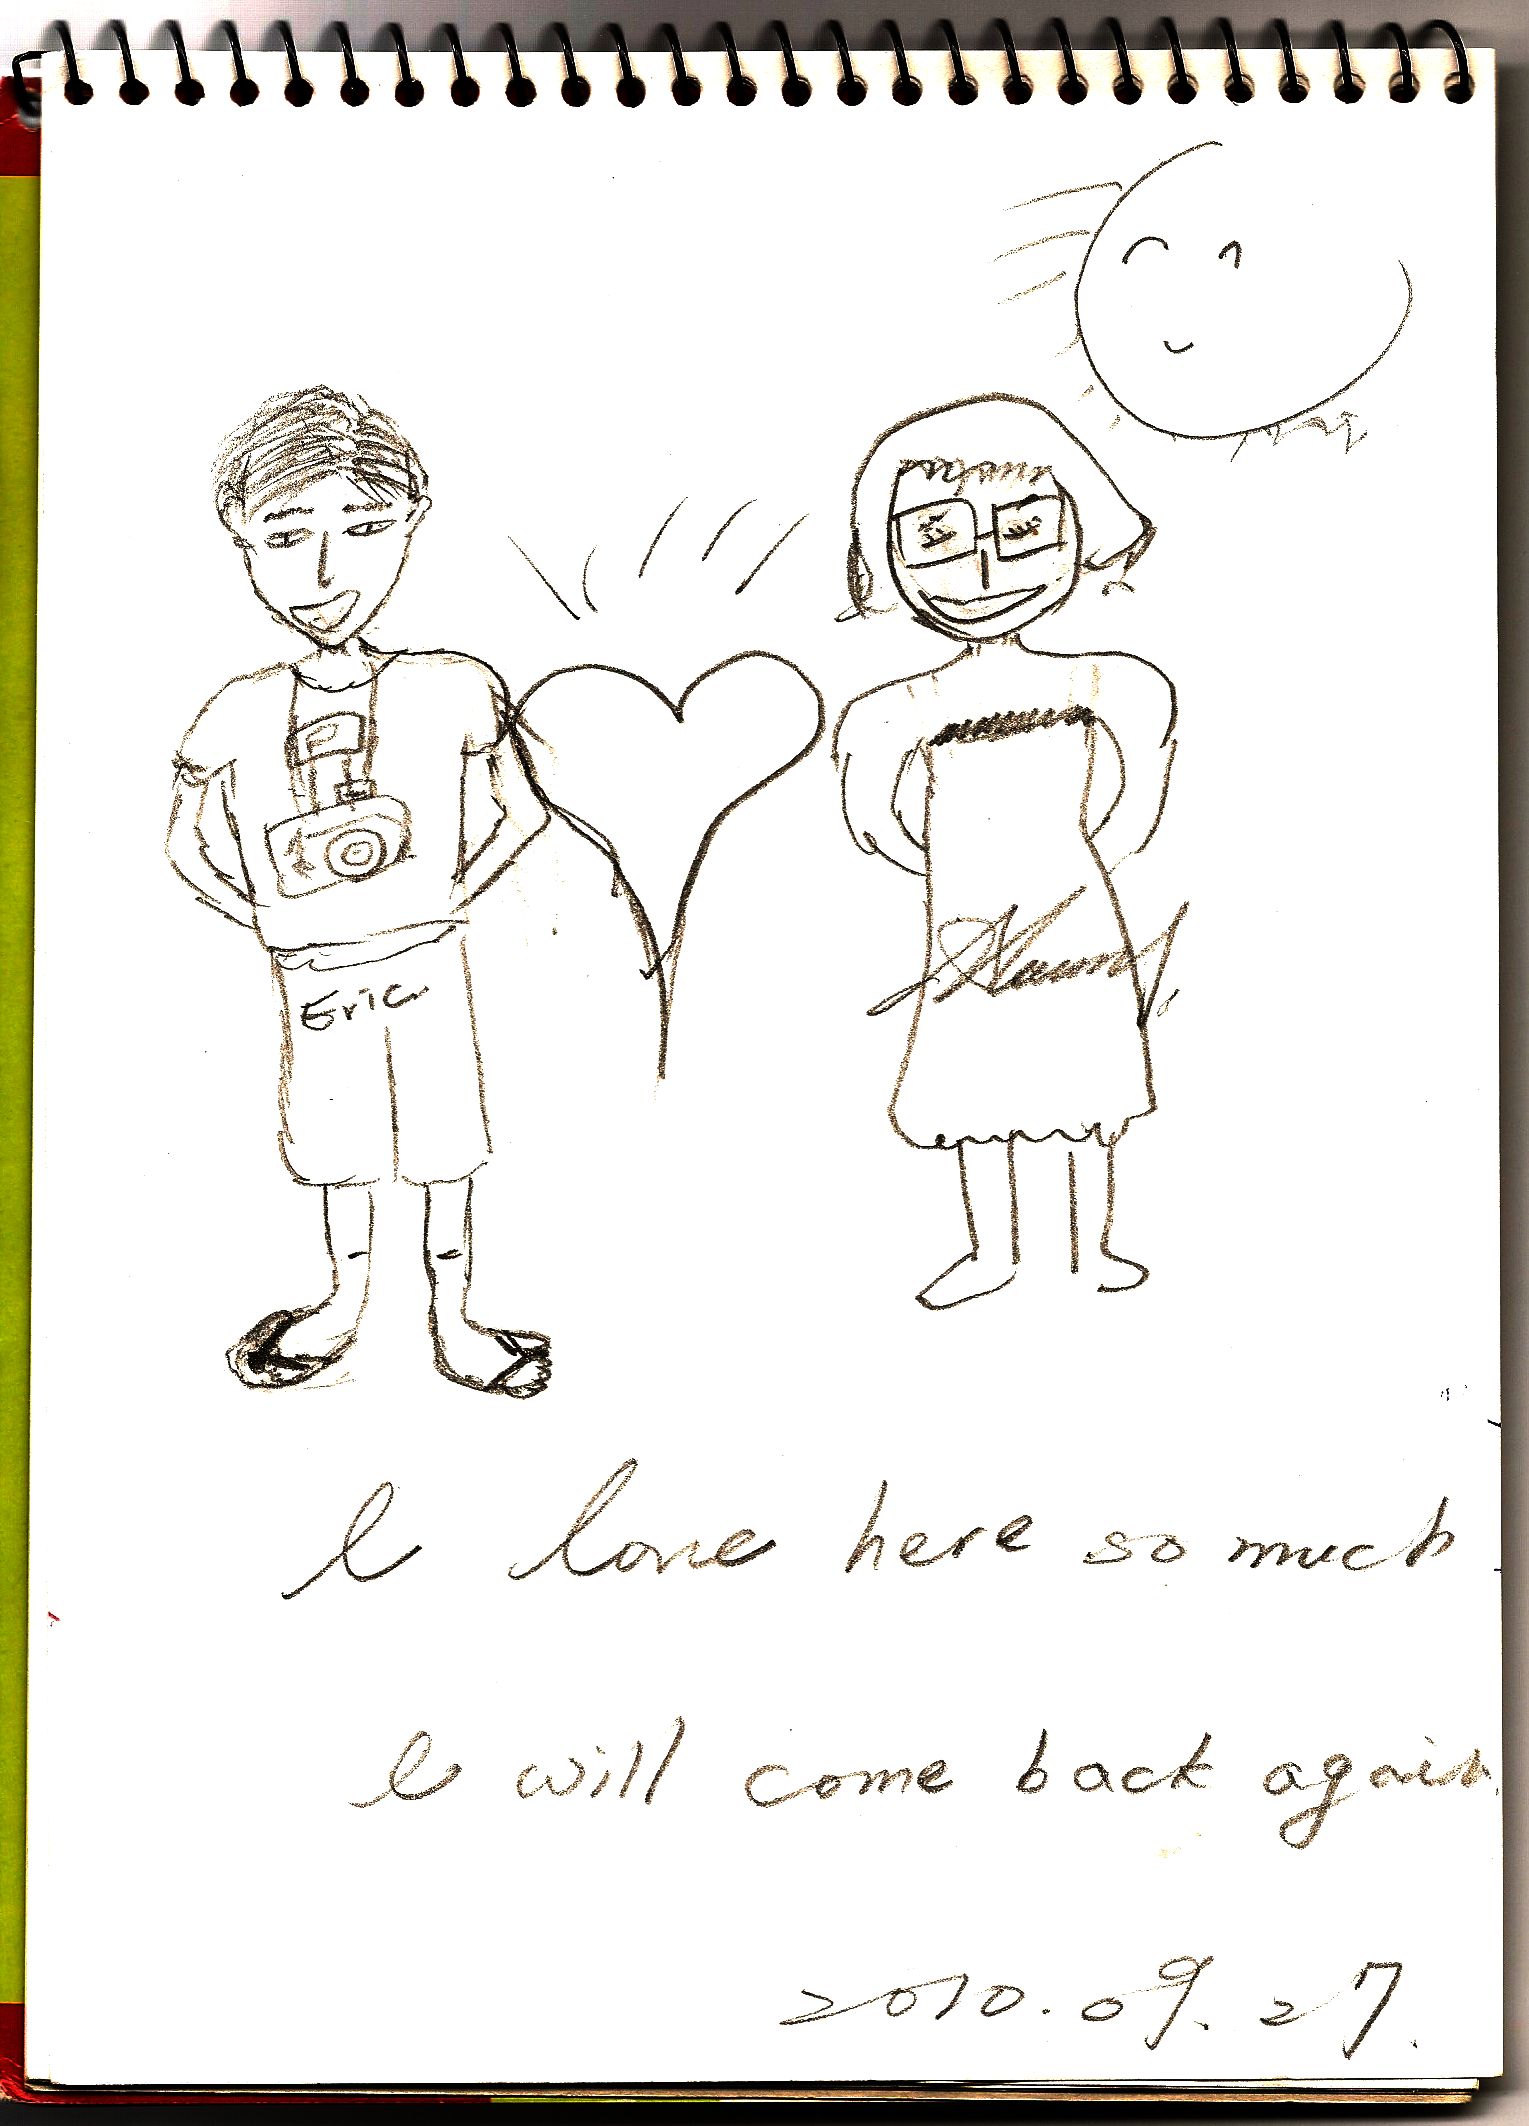 Eric
I love here so much
I will come back again.
2010.09.27.